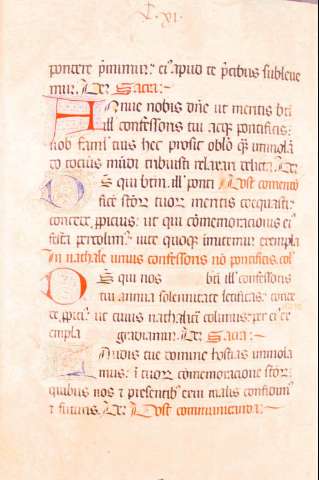 pondere p̄mimur: ei' apud te p̄cibus subleue
mur. Per Sacra:~
Annue nobis dn̄e ut meritis b̄ti
ill' confessoris tui atq; pontificis:
nob famł tuis hec prosit oblō qͣ imolā
do totius mūdi tribuisti relaxari delicta. Per
Ds qui btm̄. ill' ponti Post comenō
ficē stōr tuor meritis coequasti:
concede, ꝓpicius: ut qui cōmemoracionis ei'
festa percolim': vite quoqs imitemur exempla
In nathale unius confessoris nō pontificis. col'
Ds qui nos b̄ti ill' confessoris
tui annua solennitate letificas: conce
de, ꝓpici': ut cuius nathalicē colimus: per ei' ex
empla gradiamur. Per Sacra:~
Laudis tue domine hostias immola
mus: ī tuor cōmemoracione stōr:
quibus nos ⁊ presentib' exui malis confidim'
⁊ futuris. Per Post communicanda:~